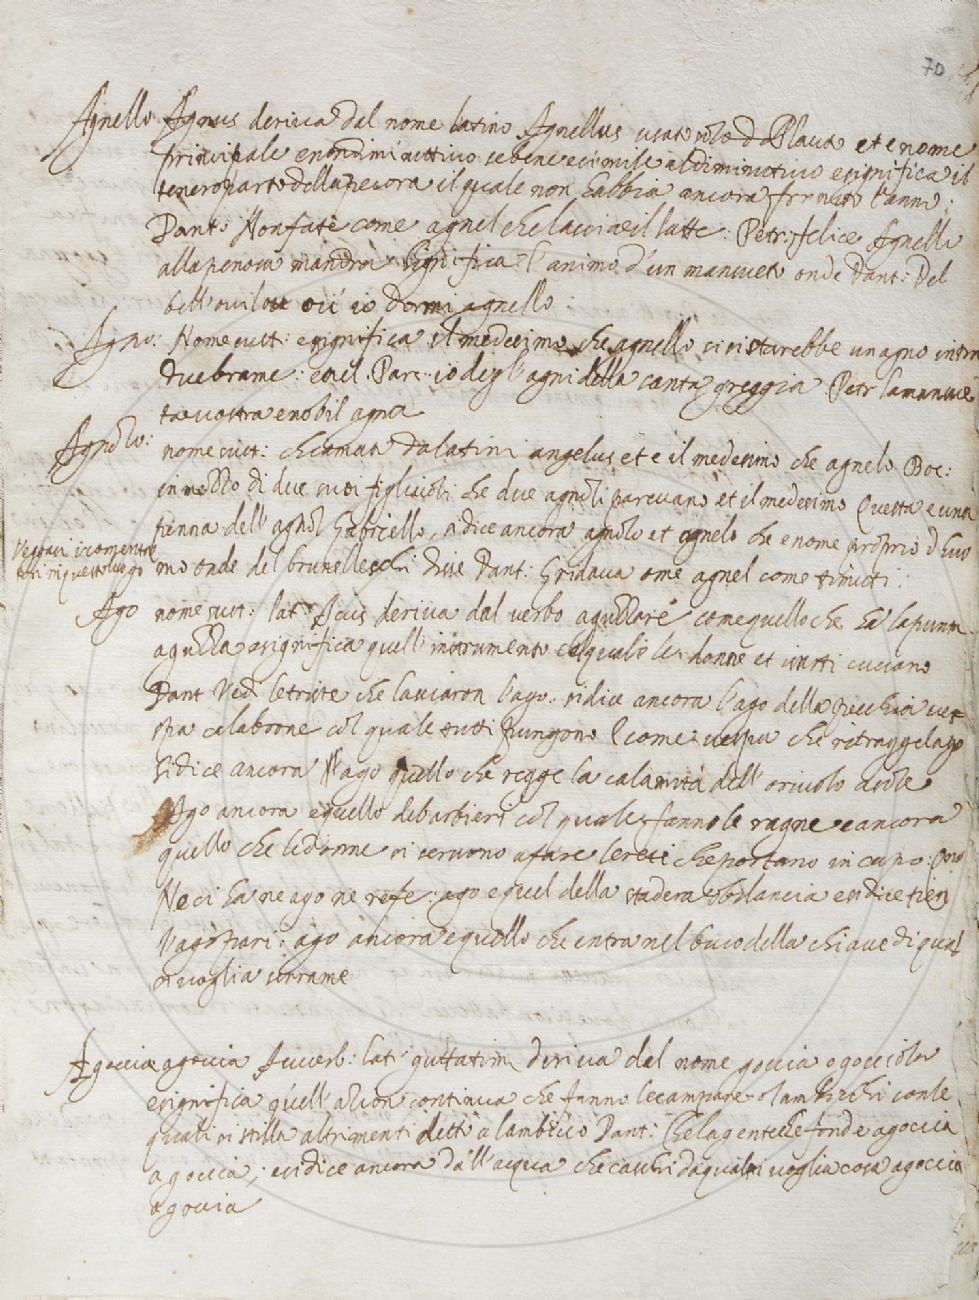 70
Agnello Agnus deriva dal nome latino Agnellus usato solo da Plauto et e nome
principale e non diminuttivo se bene e simile al diminutivo e significa il
tenero parto della pecora il quale non habbia ancora fornito l'anno:
Dant. Non fate come agnel che lascia il latte: Petr: felice Agnello
alla penosa mandra significa l'animo d'un mansueto onde Dant: Del
bell'ovile ov' io dormi agnello
Agno: Nome sust: e significa il medesimo che agnello si si starebbe un agno intra
due brame: e nel Par: io degl'agni della santa greggia Petr la mansue
ta vostra e nobil agna
Agnolo: nome sust: chiamato da latini angelus et e il medesimo che agnelo Boc:
in modo di due suoi figliuoli che due agnoli parevano et il medesimo Questa e una
penna dell'agnol Gabriello, si dice ancora agnolo et agnelo che e nome proprio d'huo
mo onde del brunelleschi disse Dant: Gridava ome agnel come ti muti:
Vegasi i comentatori in questo luogo
Ago nome sust: lat Acus deriva dal verbo aguzzare come quello che ha la punta
aguzza e significa quell'instrumento col quale le donne et i sarti cuciano
Dant Vedi le triste che lasciaron l'ago: si dice ancora l'ago della pecchia ves
pa calabrone col quale tutti pungono E come vespa che ritragge l'ago
Si dice ancora l'ago quello che regge la calamita dell'orivolo a sole
Ago ancora e quello de barbieri col quale fanno le ragne e ancora
quello che le donne si servono a fare le reti che portano in capo:
Ne ci ha ne ago ne refe: ago e quel della stadera o bilancia e si dice tien
l'ago pari: ago ancora e quello che entra nel buco della chiave di qual
si voglia serrame
A goccia a goccia Avverb: lat: guttatim deriva dal nome goccia o gocciola
e significa quell'azion continua che fanno le campane o lambicchi con le
quali si stilla altrimenti detto a lambicco Dant: Che la gente che fonde a goccia
a goccia; e si dice ancora dell'acqua che caschi da qual si voglia cosa a goccia
a goccia